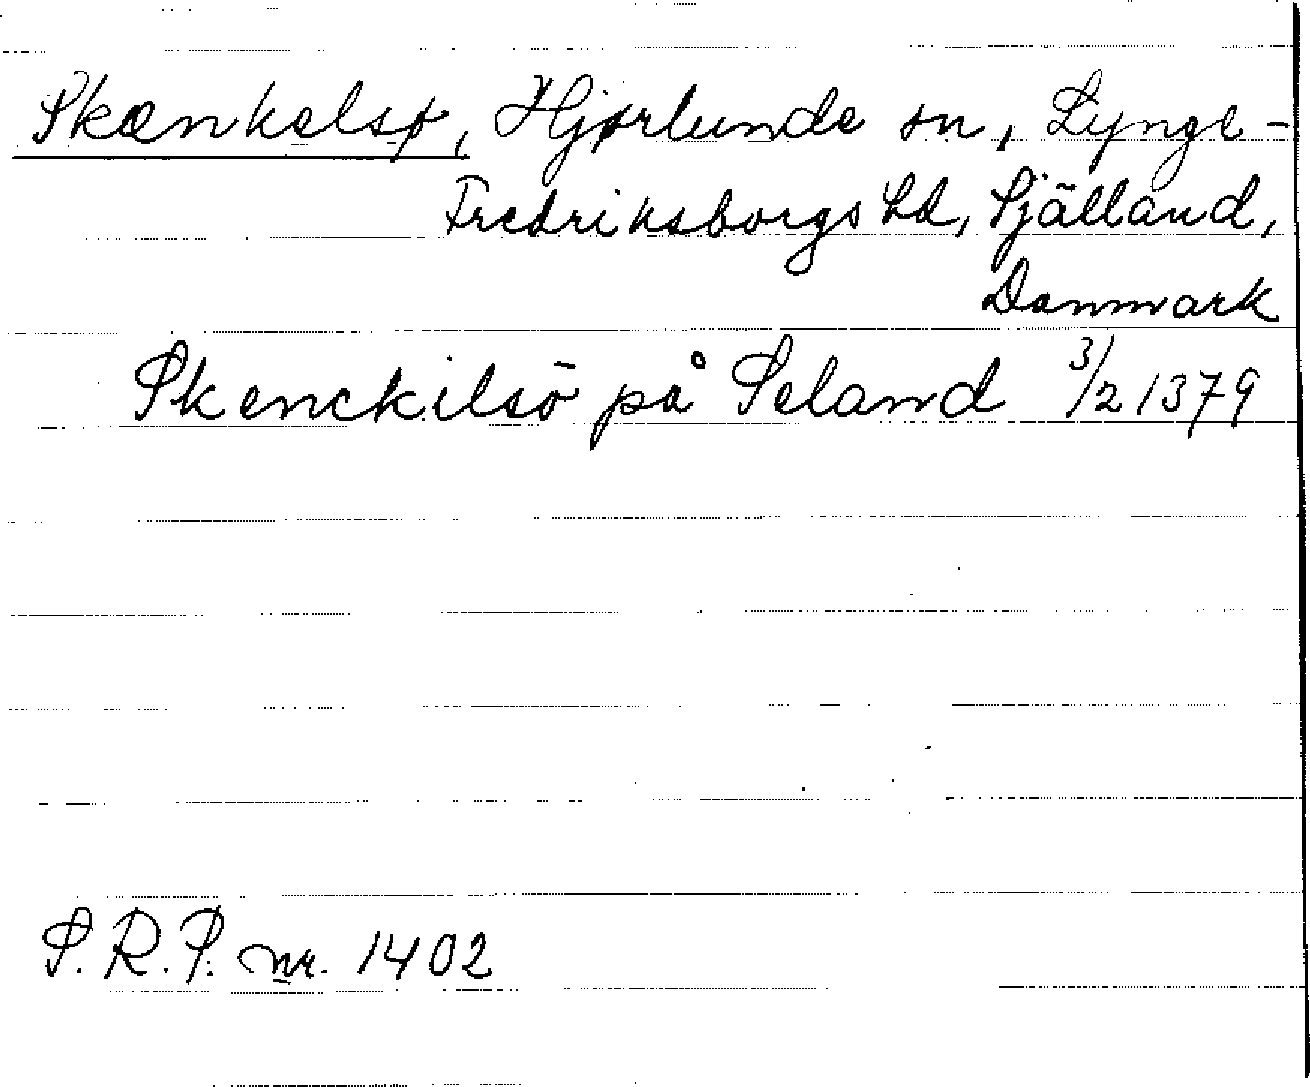 Skænkelsø, Hjørlunde sn, Lynge-
Fredriksborgs hd, Själland,
Danmark
Skenckilsö på Seland 3/2 1379
S.R.P. nr. 1402